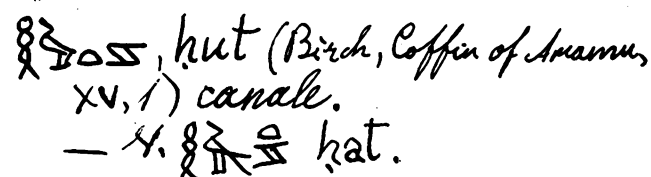 , ḥut (Birch, Coffin of Amamu,
XV, 1) canale.
— V. ḥat.